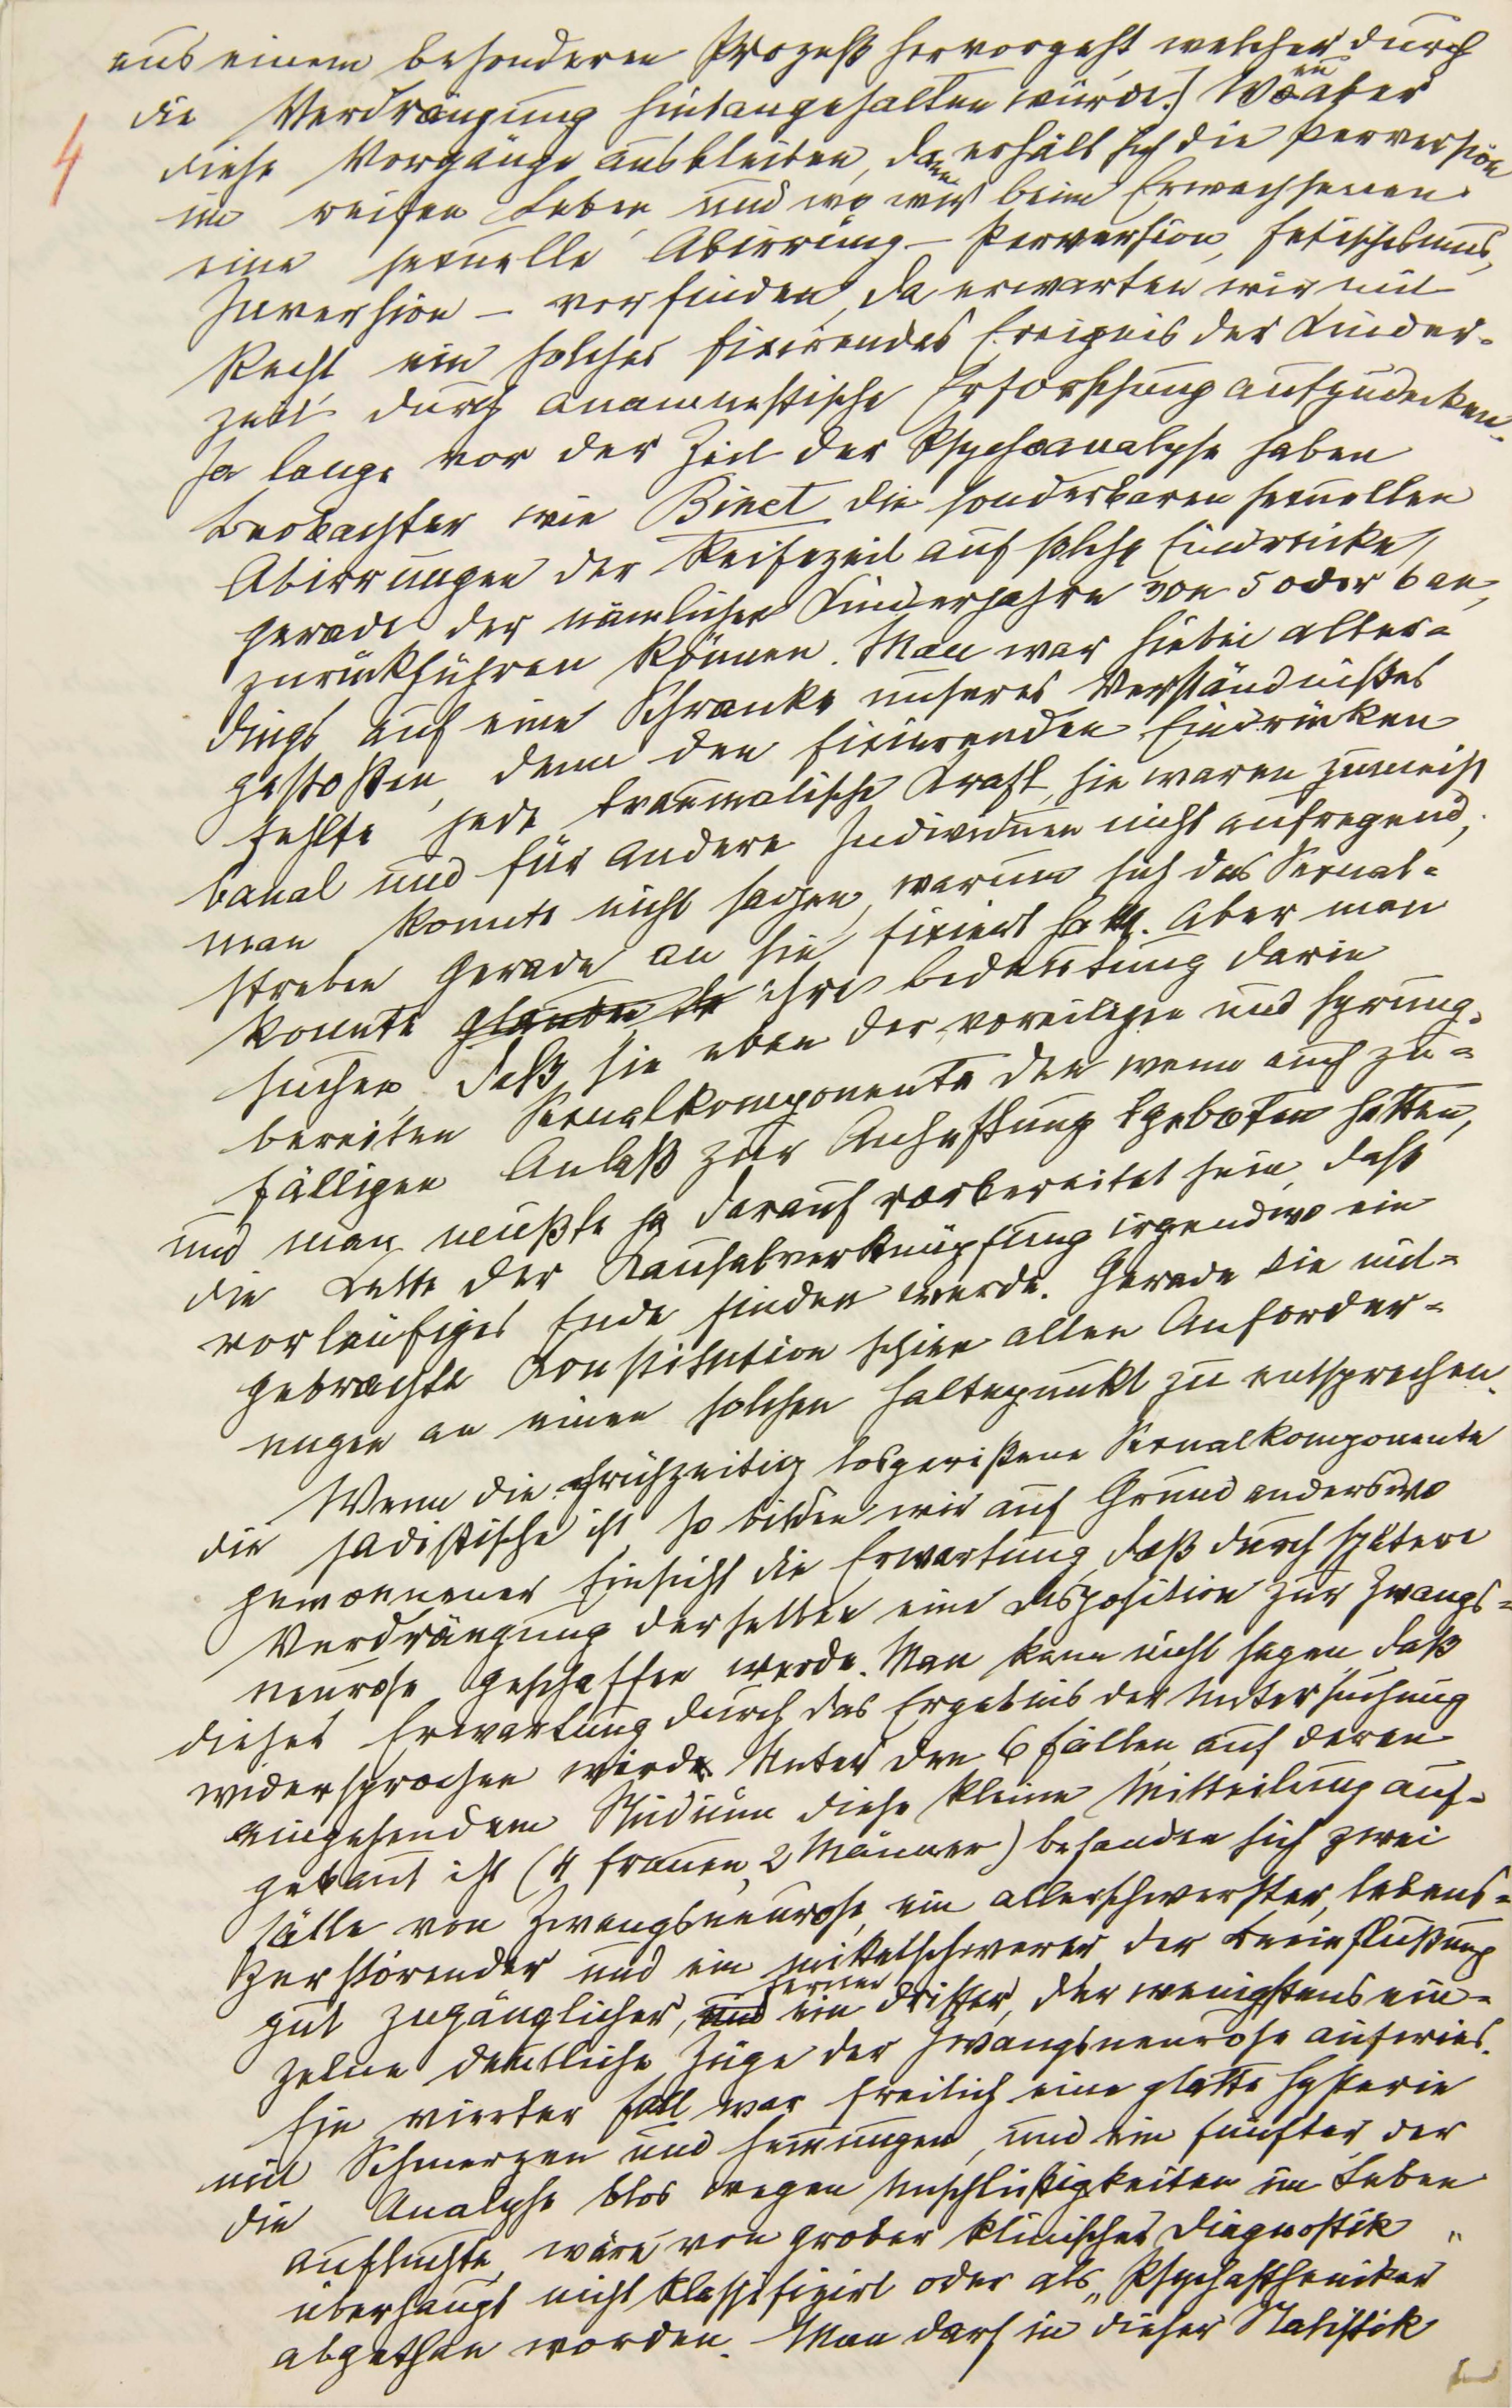 aus einem besonderen Prozeß hervorgeht welcher durch
die Verdrängung hintangehalten würde.] Wenn aber
4
diese Vorgänge ausbleiben, dann erhält sich die Perversion
im reifen Leben und wo wir beim Erwachsenen
eine sexuelle Abirrung – Perversion, Fetischismus,
Inversion – vorfinden, da erwarten wir mit
Recht ein solches fixirendes Ereignis der Kinder-
zeit durch anamnestische Erforschung aufzudecken.
Ja lange vor der Zeit der Psychoanalyse haben
Beobachter wie Binet die sonderbaren sexuellen
Abirrungen der Reifezeit auf solche Eindrücke,
gerade der nämlichen Kinderjahre von 5 oder 6 an,
zurückführen können. Man war hiebei aller-
dings auf eine Schranke unseres Verständnißes
gestoßen, denn den fixirenden Eindrücken
fehlte jede traumatische Kraft, sie waren zumeist
banal und für andere Individuen nicht aufregend;
man konnte nicht sagen, warum sich das Sexual-
streben gerade an sie fixiert hatte. Aber man
konnte ihre Bedeutung darin
suchen, daß sie eben der voreiligen und sprung-
bereiten Sexualkomponente den wenn auch zu-
fälligen Anlaß zur Anheftung geboten hatten,
und man mußte ja darauf vorbereitet sein, daß
die Kette der Kausalverknüpfung irgendwo ein
vorläufiges Ende finden werde. Gerade die mit-
gebrachte Konstitution schien allen Anforder-
ungen an einen solchen Haltepunkt zu entsprechen.
Wenn die frühzeitig losgerißene Sexualkomponente
die sadistische ist, so bilden wir auf Grund anderswo
gewonnener Einsicht die Erwartung, daß durch spätere
Verdrängung derselben eine Disposition zur Zwangs-
neurose geschaffen werde. Man kann nicht sagen daß
dieser Erwartung durch das Ergebnis der Untersuchung
widersprochen wird. Unter den 6 Fällen, auf deren
eingehendem Studium diese kleine Mitteilung auf-
gebaut ist (4 Frauen, 2 Männer) befanden sich zwei
Fälle von Zwangsneurose, ein allerschwerster, lebens-
zerstörender und ein mittelschwerer, der Beeinflußung
gut zugänglicher, und ferner ein dritter, der wenigstens ein-
zelne deutliche Züge der Zwangsneurose aufwies.
Ein vierter Fall war freilich eine glatte Hysterie
mit Schmerzen und Hemungen, und ein fünfter, der
die Analyse blos wegen Unschlüßigkeiten im Leben
aufsuchte, wäre von grober klinischer Diagnostik
überhaupt nicht klassifizirt oder als „Psychastheniker"
abgethan worden. Man darf in dieser Statistik